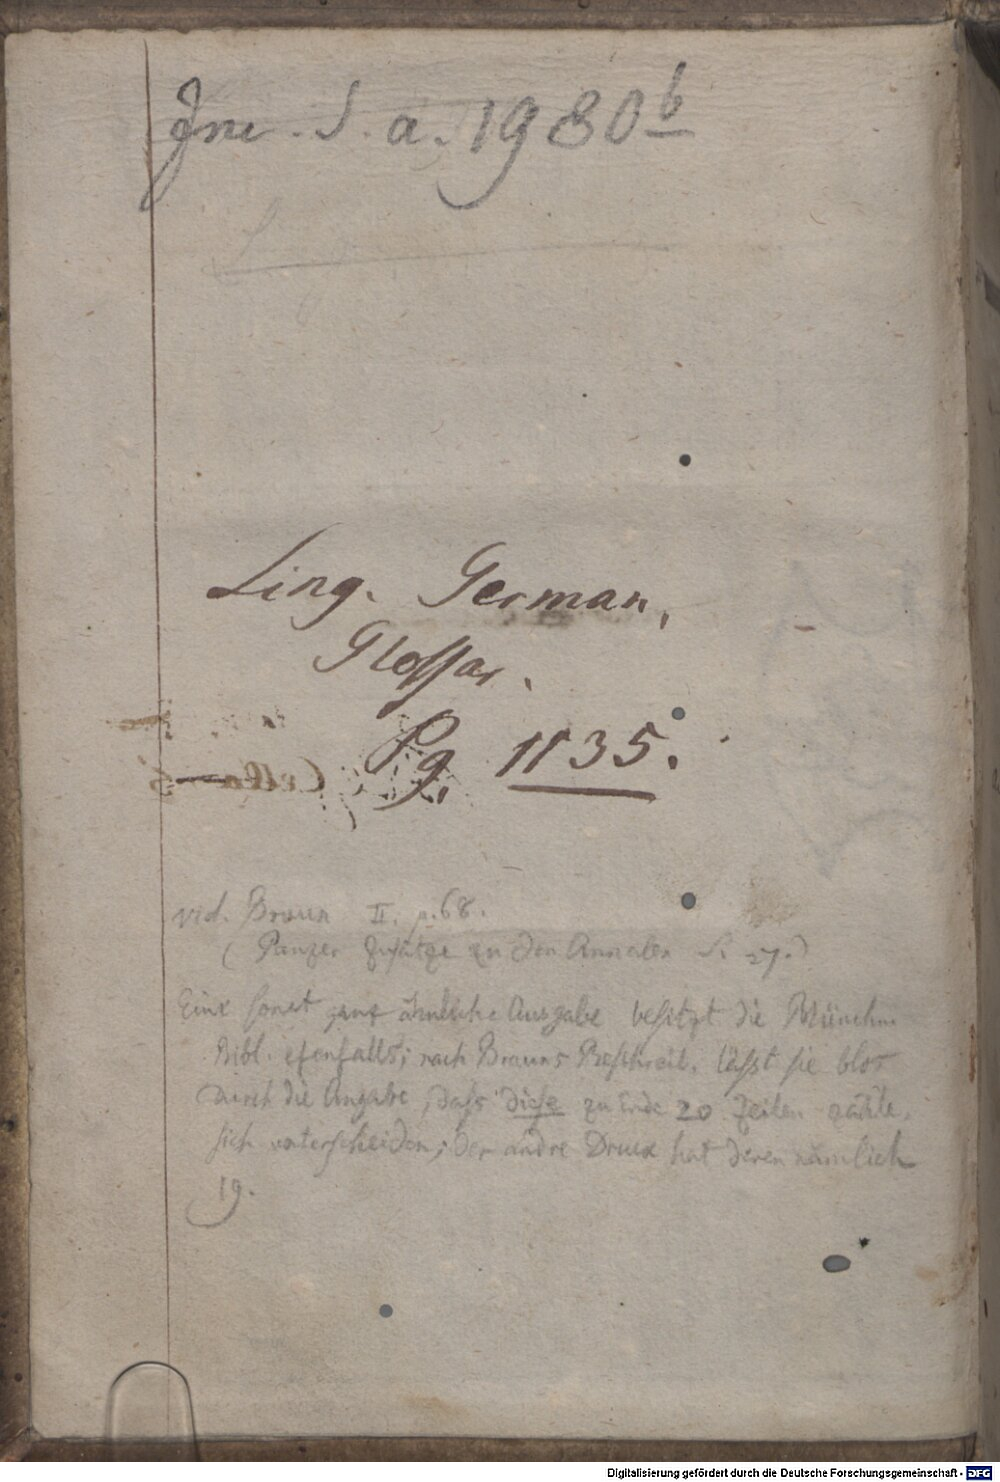 Inc. s. a. 1980 b
Ling. German,
Glossar.
Pg. 1135.
vid. Braun II. p. 68.
(Panzer Zusätze zu den Annalen S. 27.)
Eine sonst ganz ähnliche Ausgabe besitzt die Münchn.
Bibl. ebenfalls; nach Brauns Beschreib. lässt sie blos
durch die Angabe, dass diese zu Ende 20 Zeilen zähle,
sich unterscheiden; der andre Druck hat deren nämlich
19.
Digitalisierung gefördert durch die Deutsche Forschungsgemeinschaft - DFG